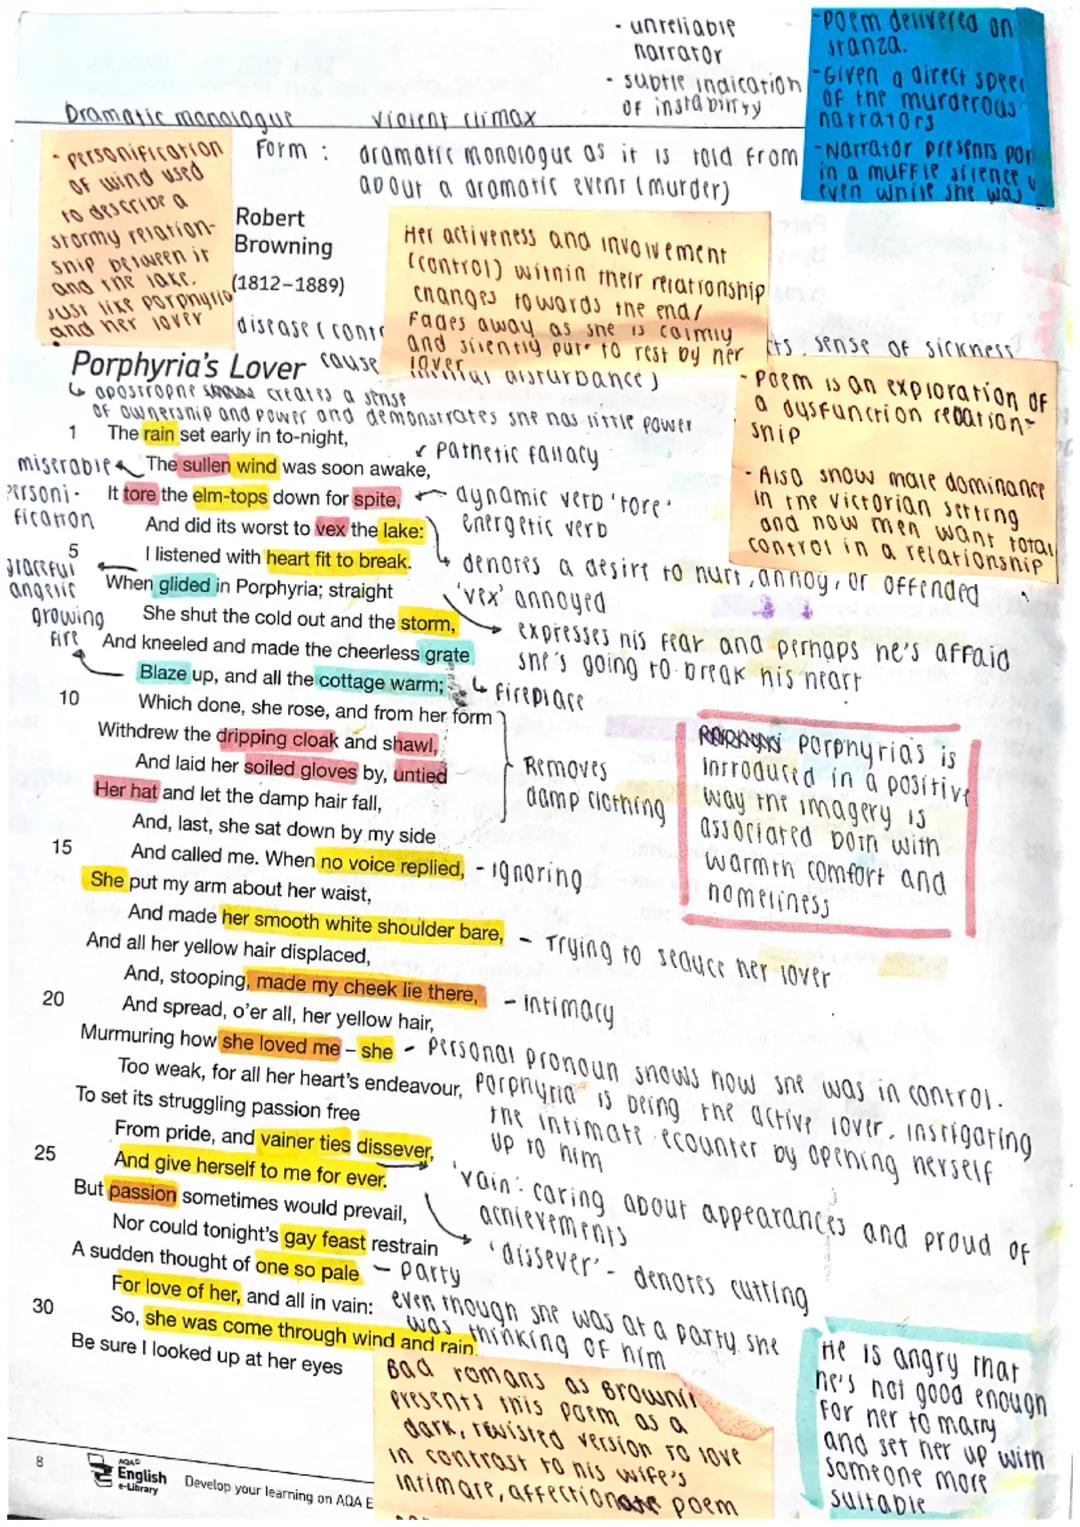 - unreliable
narrator
- subtle indication
of instability
- Poem delivered on
stanza.
- Given a direct
of the murderous
narrators
- Narrator presents
in a muffle silence
even while she was
Dramatic monologue
violent climax
Form : dramatic monologue as it is told from
about a dramatic event (murder)
- personification
of wind used
to describe a
stormy relation-
ship between it
and the lake.
Just like porphyria
and her lover
Robert
Browning
(1812–1889)
Her activeness and involvement
(control) within their relationship
changes towards the end/
Fades away as she is calmly
and silently put to rest by her
lover
disease (
sense of sickness
cause
mental disturbance)
Porphyria's Lover
apostrophe creates a sense
of ownership and power and demonstrates she has little power
- Poem is an exploration of
a dysfunction relation-
ship
- Also show male dominance
in the victorian setting
and how men want total
control in a relationship
1 The rain set early in to-night,
pathetic fallacy
miserable
The sullen wind was soon awake,
Personi-
fication
It tore the elm-tops down for spite,
dynamic verb 'tore'
energetic verb
And did its worst to vex the lake:
denotes a desire to hurt, annoy, or offended
'vex' annoyed
5 I listened with heart fit to break.
expresses his fear and perhaps he's affaid
she's going to break his heart
graceful
angelic
When glided in Porphyria; straight
She shut the cold out and the storm,
growing
fire
And kneeled and made the cheerless grate
fireplace
Blaze up, and all the cottage warm;
10 Which done, she rose, and from her form
Withdrew the dripping cloak and shawl,
And laid her soiled gloves by, untied
Removes
damp clothing
Her hat and let the damp hair fall,
And, last, she sat down by my side
porphyria's is
introduced in a positive
way the imagery is
associated both with
warmth comfort and
homeliness
15 And called me. When no voice replied, - ignoring
She put my arm about her waist,
And made her smooth white shoulder bare, - Trying to seduce her lover
And all her yellow hair displaced,
And, stooping, made my cheek lie there, - intimacy
20 And spread, o'er all, her yellow hair,
Murmuring how she loved me – she - Personal pronoun shows how she was in control.
Too weak, for all her heart's endeavour, porphyria is being the active lover, instigating
the intimate ecounter by opening herself
up to him
To set its struggling passion free
From pride, and vainer ties dissever,
25 And give herself to me for ever.
'vain': caring about appearances and proud of
achievements
But passion sometimes would prevail,
'dissever' - denotes cutting
Nor could tonight's gay feast restrain
- party
A sudden thought of one so pale
For love of her, and all in vain:
even though she was at a party she
was thinking of him
30 So, she was come through wind and rain.
Be sure I looked up at her eyes
Bad romans as
presents this poem as a
dark, twisted version to love
in contrast to his wife's
intimate, affectionate poem
He is angry that
he's not good enough
for her to marry
and set her up with
someone more
suitable
8
AQA
English
e-Library
Develop your learning on AQA E